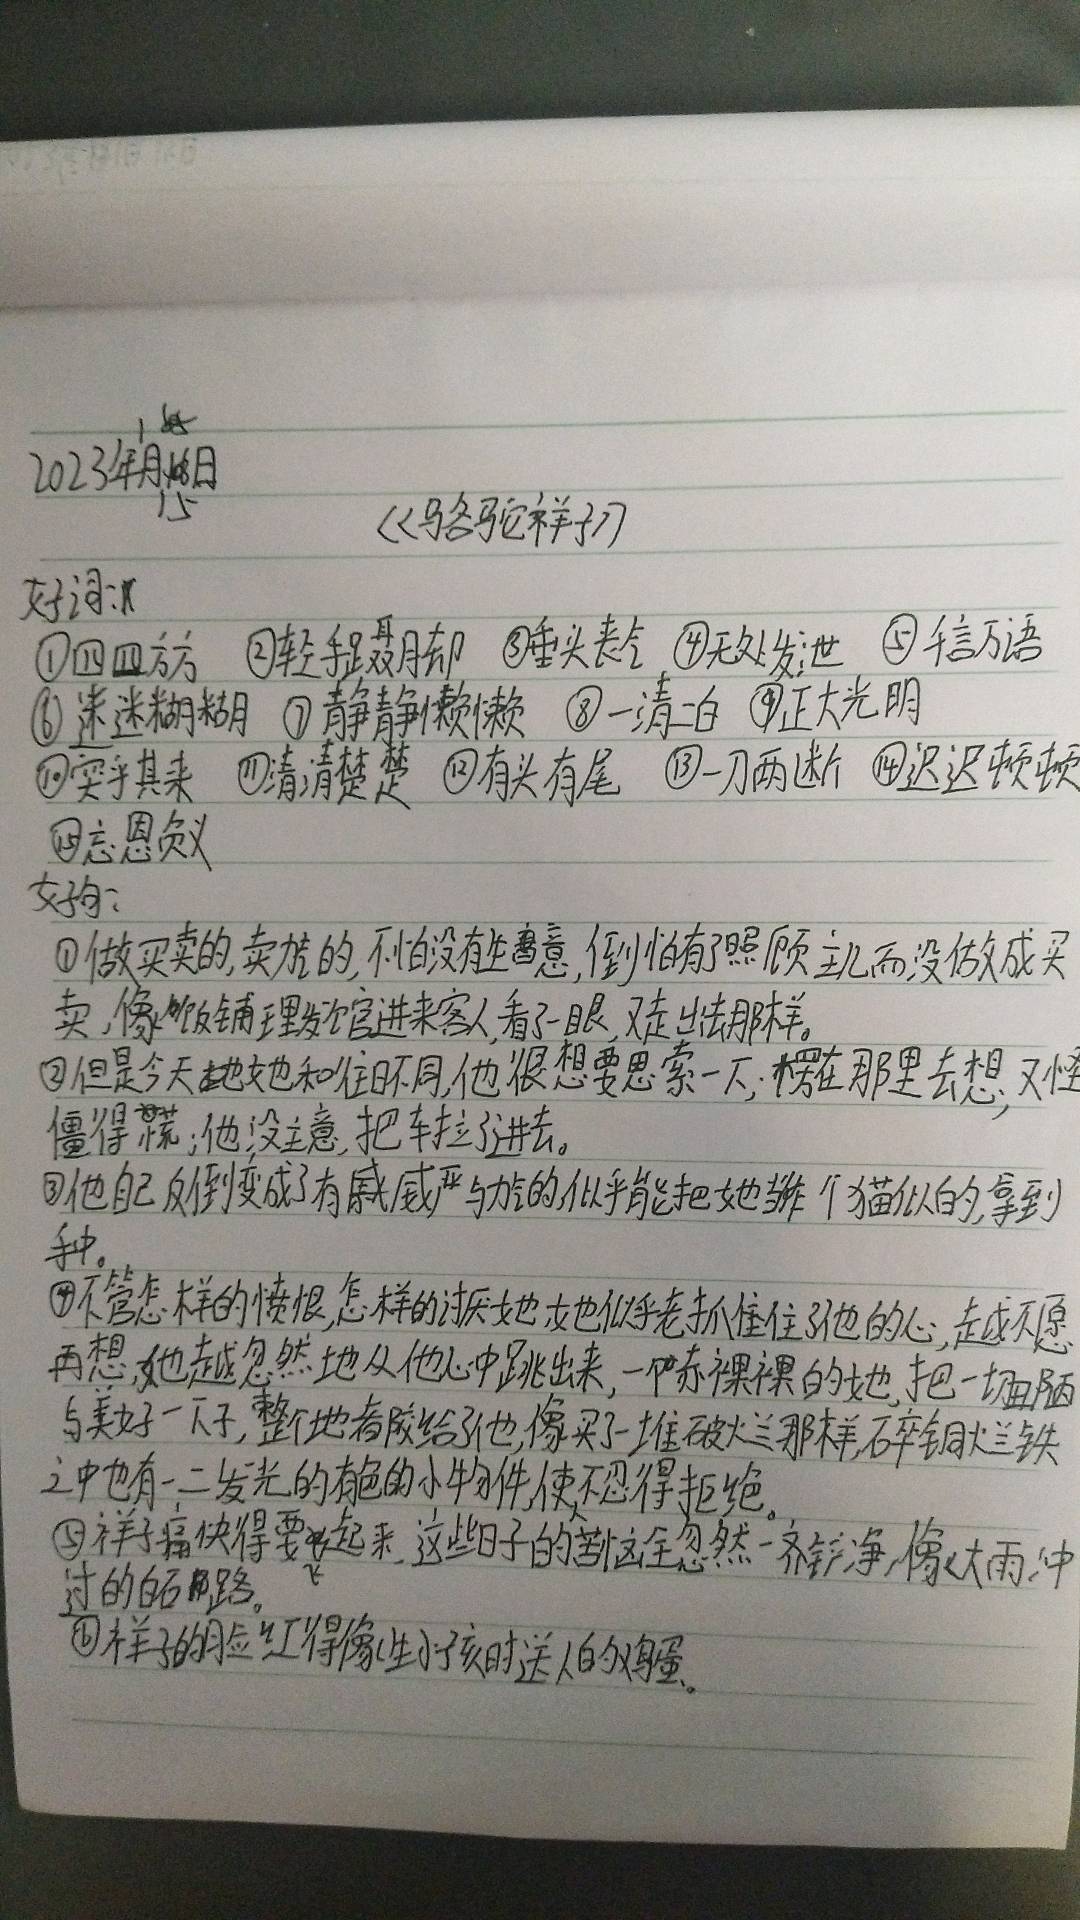 2023年1月15日
《骆驼祥子》
好词：
①四四方方 ②轻手蹑脚 ③垂头丧气 ④无处发泄 ⑤千言万语
⑥迷迷糊糊 ⑦静静懒懒 ⑧一清二白 ⑨正大光明
⑩突乎其来 ⑪清清楚楚 ⑫有头有尾 ⑬一刀两断 ⑭迟迟顿顿
⑮忘恩负义
好句：
①做买卖的,卖力气的,不怕没有生意,倒怕有了照顾主儿而没做成买
卖,像饭铺理发馆进来客人,看了一眼,又走出去那样。
②但是今天她和往日不同,他很想要思索一下;楞在那里去想,又怪
僵得慌;他没主意,把车拉了进去。
③他自己反倒变成了有威严与力气的,似乎能把她当作个猫似的,拿到
手中。
④不管怎样的愤恨,怎样的讨厌她,她似乎老抓住了他的心,越不愿
再想,她越忽然地从他心中跳出来,一个赤裸裸的她,把一切丑陋
与美好一下子,整个地都交给了他,像买了一堆破烂那样,碎铜烂铁
之中也有一二发光的有色的小物件,使人不忍得拒绝。
⑤祥子痛快得要飞起来,这些日子的苦恼全忽然一齐铲净,像大雨冲
过的白石路。
⑥祥子的脸红得像生小孩时送人的鸡蛋。